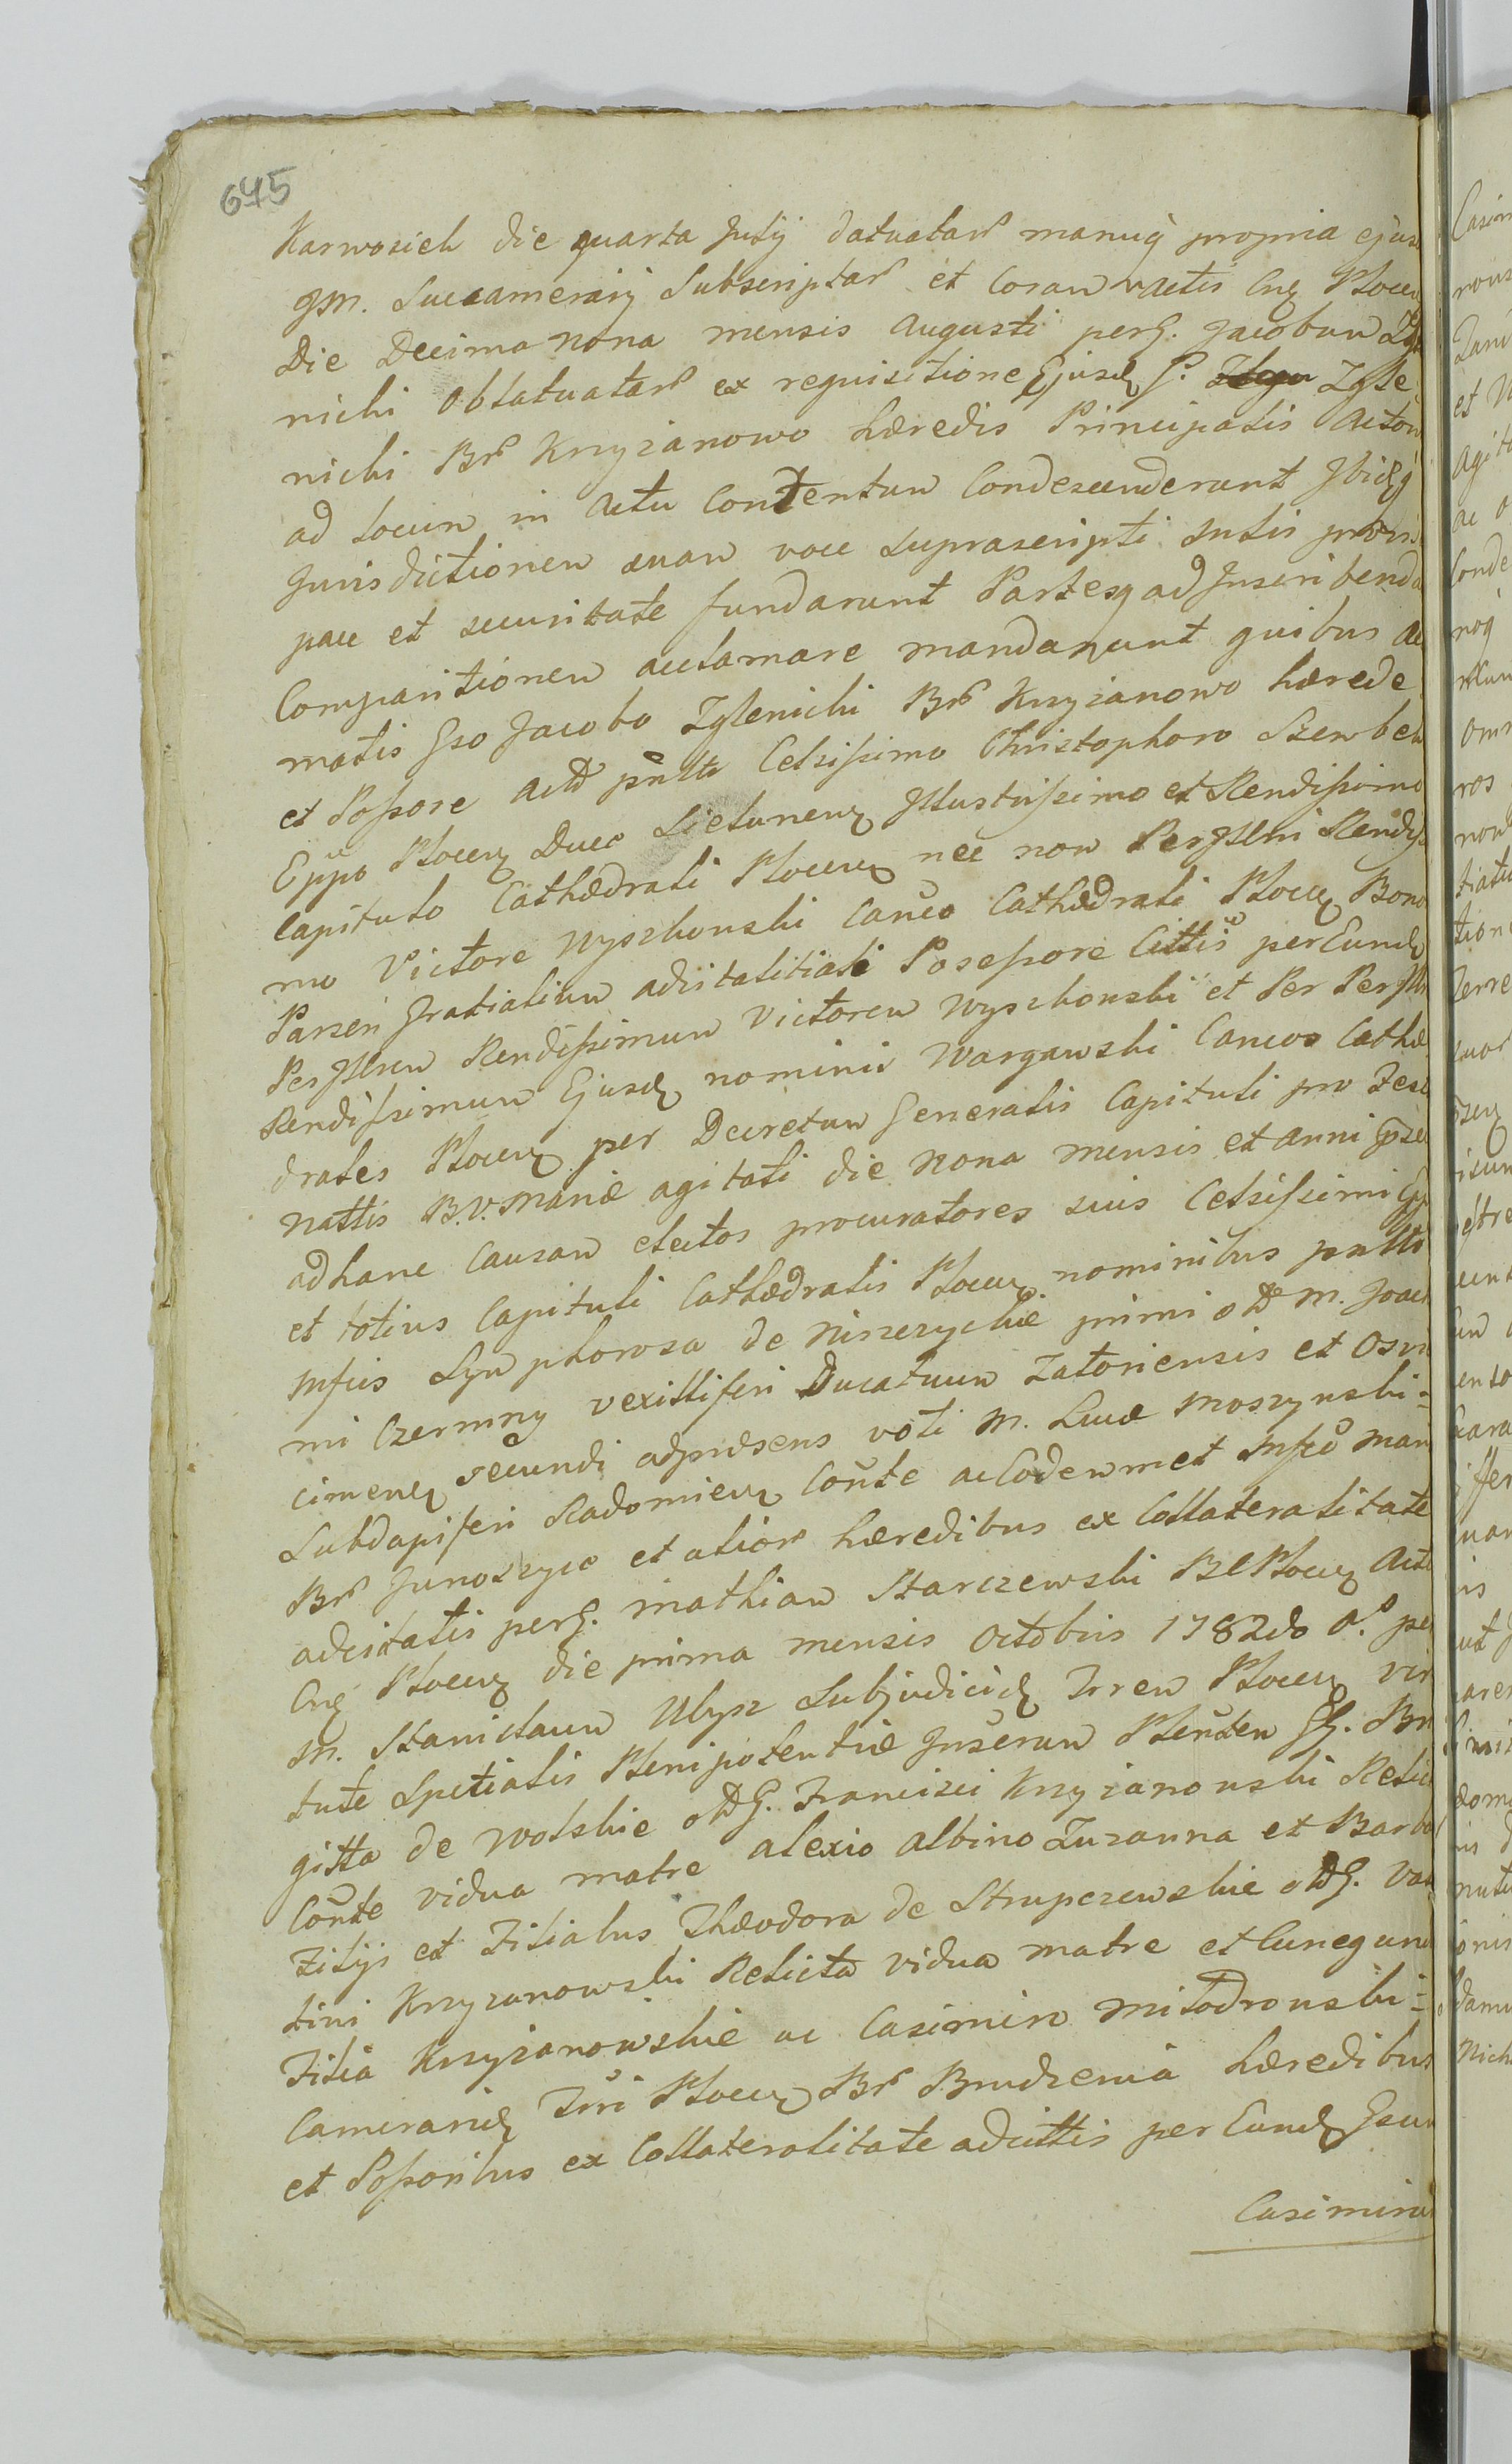 645
Karwosieck die quarta Julij datuatar manuq propria ejusd
JM. Succamerarij Subscriptar et Coram Actis Cnq Plocen
Die Decima Nona mensis Augusti per G. Jacobum
nichi Oblatuatar ex requisitione Ejusd G. Zgle
nichi Br Krzyzanowo Hæredis Principalis Acto
ad locum in Actu Contentum Condescenderunt Ibidq
Jurisdictionem suam voce suprascripti
pace et securitate fundarunt Partesq ad Inscribenda
Comparitionem acclamare mandarunt quibus ac
matis Gso Jacobo Zglenicki Br Krzyzanowo hærede
et Possore Actor pnttr Celsissimo Christophoro Szembek
Eppo Plocen Duce Sielunen Illustrissimo et Rendissimo
Capitulo Cathædrali Plocen nec non Per Illri Rendis
mo Victore Wyszkouski Canco Cathædrali Plocen Bono
Parsen Gratialium advitalitiali Posessore Cittis per Eund
Per Illrem Rendissimum Victorem Wyszkouski et Per Per Illr
Rendissimum Ejusd nominis Wargawski Cancos Cathæ
drales Plocen per Decretum Generalis Capituli pro Fest
Nattis B.V. Mariæ agitati die Nona mensis et Anni
ad hanc Causam electos procuratores suis Celsissimi
et totius Capituli Cathædralis Plocen nominibus pnttr
Mfcis Symphorosa de Niszczyckie primi M. Joac
mi Czermny vexilliferi Ducatuum Zatoriensis et Osvi
cimen secundi ad præsens voti M. Lucæ Moszynski=
Subdapiferi Radomien Conte ac Eodemmet Mfco Mari
Br Junoszyce et alior hæredibus ex Collateralitate
adcitatis per G. Mathiam Starczewski BC Plocen Actis
Cnq Plocen die prima mensis Octobris 1782do per
M. Stanislaum Ubysz Subjudicid Trren Plocen vir
tute Spetialis Plenipotentiæ Inseren Plenten GG. Bri
gitta de Wolskie G. Francisci Krzyzanouski Relic
Conte vidua matre Alexio Albino Zuzanna et Barba
Filijs et Filiabus Theodora de Strupczewskie G. Valen
tini Krzyzanowski Relicta vidua matre et Cunegund
Filia Krzyzanowskie ac Casimiro Milodrouski=
Camerarid Trri Plocen Br Brudzenia hæredibus
et Possoribus ex Collateralitate adcittis per Eund Gsum
Casimirum